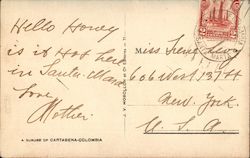 Hello Honey
is it Hot here
in Santa Marta
Love
Mother.
A SUBURB OF CARTAGENA-COLOMBIA
Miss Irene
606 West 137th
New York.
U. S. A.